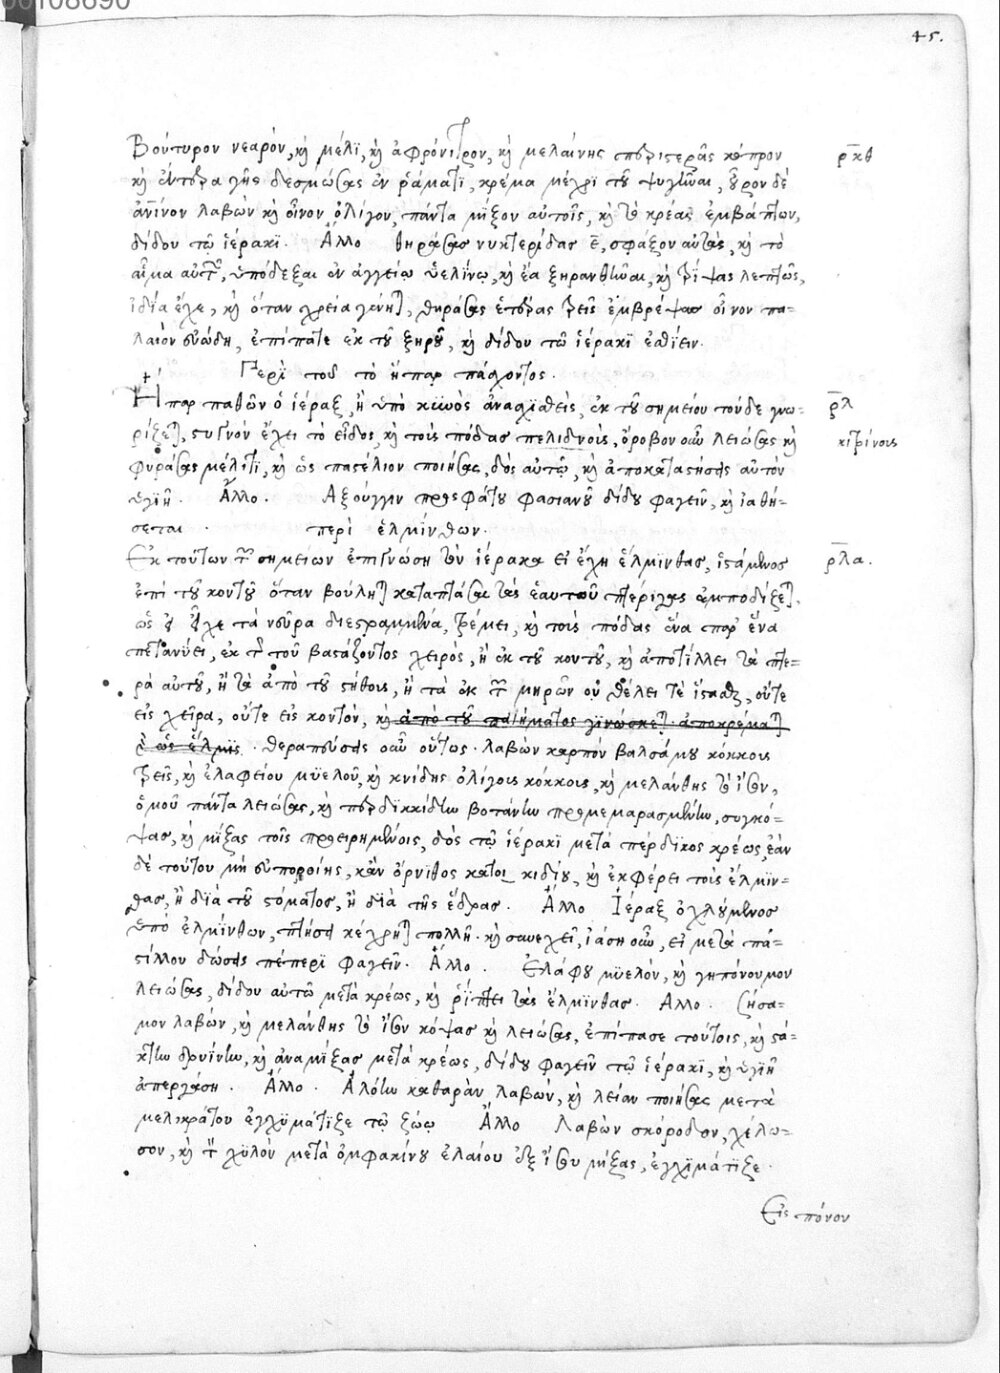 45.
Βούτυρον νεαρὸν, κὴ μέλϊ, κὴ ἀφρόνιτρον, κὴ μελαίνης περιστερᾶς κόπρον ρκθ
κὴ ἔντερα γῆς δεσμώσας ἐν ῥάματϊ, κρέμα μέχρϊ τοῦ ψυγῆναι, οὖρον δὲ
λαβὼν κὴ οἶνον ὀλίγον, πάντα μῖξον αὐτοῖς, κὴ τὸ κρέας ἐμβάπτων,
δίδου τῷ ἱέρακϊ. Ἄλλο θηράσας νυκτερίδας ε, σφάξον αὐτὰς, κὴ τὸ
αἷμα αὐτῶν, ὑπόδεξαι ἐν ἀγγείῳ ὑελίνῳ, κὴ ἔα ξηρανθῆναι, κὴ τρίψας λεπτῶς,
ἰδίᾳ ἔχε, κὴ ὅταν χρεία γένηται, θηράσας ἑτέρας τρεῖς ἐμβρέψας οἶνον πα-
λαιὸν εὐώδη, ἐπίπαττε ἐκ τοῦ ξηροῦ, κὴ δίδου τῷ ἱέρακϊ ἐσθίειν.
Περὶ τοῦ τὸ ἧπαρ πάσχοντος.
Ἧπαρ παθὼν ὁ ἱέραξ, ἢ ὑπὸ κϋνὸς ἀναχϊαθεὶς, ἐκ τοῦ σημείου τοῦδε γνω- ρλ
ρίζεται, στυγνὸν ἔχει τὸ εἶδος, κὴ τοὺς πόδας πελιδνοὺς, ὄροβον οὖν λειώσας κὴ κιτρίνους
φυράσας μέλιτϊ, κὴ ὡς παστέλιον ποιήσας, δὸς αὐτῷ, κὴ ἀποκαταστήσεις αὐτὸν
ὑγιῆ. Ἄλλο. Ἀξούγγιν προσφάτου φασιανοῦ δίδου φαγεῖν, κὴ ἰαθή-
σεται. περὶ ἑλμίνθων.
Ἐκ τούτων τῶν σημείων ἐπιγνώσῃ τὸν ἱέρακα εἰ ἔχῃ ἕλμϊνθας, ἱστάμενος ρλα.
ἐπὶ τοῦ κοντοῦ ὅταν βούληται καταπτάσαι τὰς ἑαυτοῦ πτέρυγας ἐμποδίζεται.
ὡς εἶχε τὰ νεῦρα διεστραμμένα, τρέμει, κὴ τοὺς πόδας ἕνα παρ' ἕνα
πεταννύει, ἐκ τῆς τοῦ βαστάζοντος χειρὸς, ἢ ἐκ τοῦ κοντοῦ, κὴ ἀποτίλλει τὰ πτε-
ρὰ αὐτοῦ, ἢ τὰ ἀπὸ τοῦ στήθους, ἢ τὰ ἐκ τῶν μηρῶν οὐ θέλει τε ἵστασθαι, οὔτε
εἰς χεῖρα, οὔτε εἰς κοντὸν, κὴ ἀπὸ τοῦ πατήματος γϊνώσκεται. ἀποκρέμαται
ὡς ἕλμϊς. θεραπεύσεις οὖν οὕτως. λαβὼν καρπὸν βαλσάμου κόκκους
τρεῖς, κὴ ἐλαφείου μϋελοῦ, κὴ κνίδης ὀλίγους κόκκους, κὴ μελάνθης τὸ ἴσον,
ὁμοῦ πάντα λειώσας, κὴ περδϊκκίδην βοτάνην προμεμαρασμένην, συγκό-
ψας, κὴ μίξας τοῖς προειρημένοις, δὸς τῷ ἱέρακϊ μετὰ πέρδικος κρέως, ἐὰν
δὲ τούτου μὴ εὐπορσίης, κἂν ὄρνϊθος κατοικιδίου, κὴ ἐκφέρει τοὺς ἕλμϊν-
θας, ἢ δϊὰ τοῦ στόματος, ἢ δϊὰ τῆς ἕδρας. Ἄλλο Ἱέραξ ὀχλούμενος
ὑπὸ ἑλμίνθων, πτήσει κέχρηται πολλῇ. κὴ συνεχεῖ, ἰάσῃ οὖν, εἰ μετὰ πα-
στίλλου δώσεις πέπερϊ φαγεῖν. Ἄλλο. Ἐλάφου μϋελὸν, κὴ
λειώσας, δίδου αὐτῷ μετὰ κρέως, κὴ ῥίπτει τὰς ἕλμϊνθας. Ἄλλο. Σήσα-
μον λαβὼν, κὴ μελάνθης τὸ ἴσον κόψας κὴ λειώσας, ἐπίπασε τούτοις, κὴ στά-
κτην δρυΐνην, κὴ ἀναμίξας μετὰ κρέως, δίδου φαγεῖν τῷ ἱέρακϊ, κὴ ὑγιῆ
ἀπεργάσῃ. Ἄλλο. Ἀλόην καθαρὰν λαβὼν, κὴ λείαν ποιήσας μετὰ
μελικράτου ἐγχϋμάτϊζε τῷ ζώῳ Ἄλλο Λαβὼν σκόροδον, χύλω-
σον, κὴ τὸν χϋλὸν μετὰ ὀμφακίνου ἐλαίου ἐξ ἴσου μίξας, ἐγχϋμάτϊζε.
Εἰς πόνον